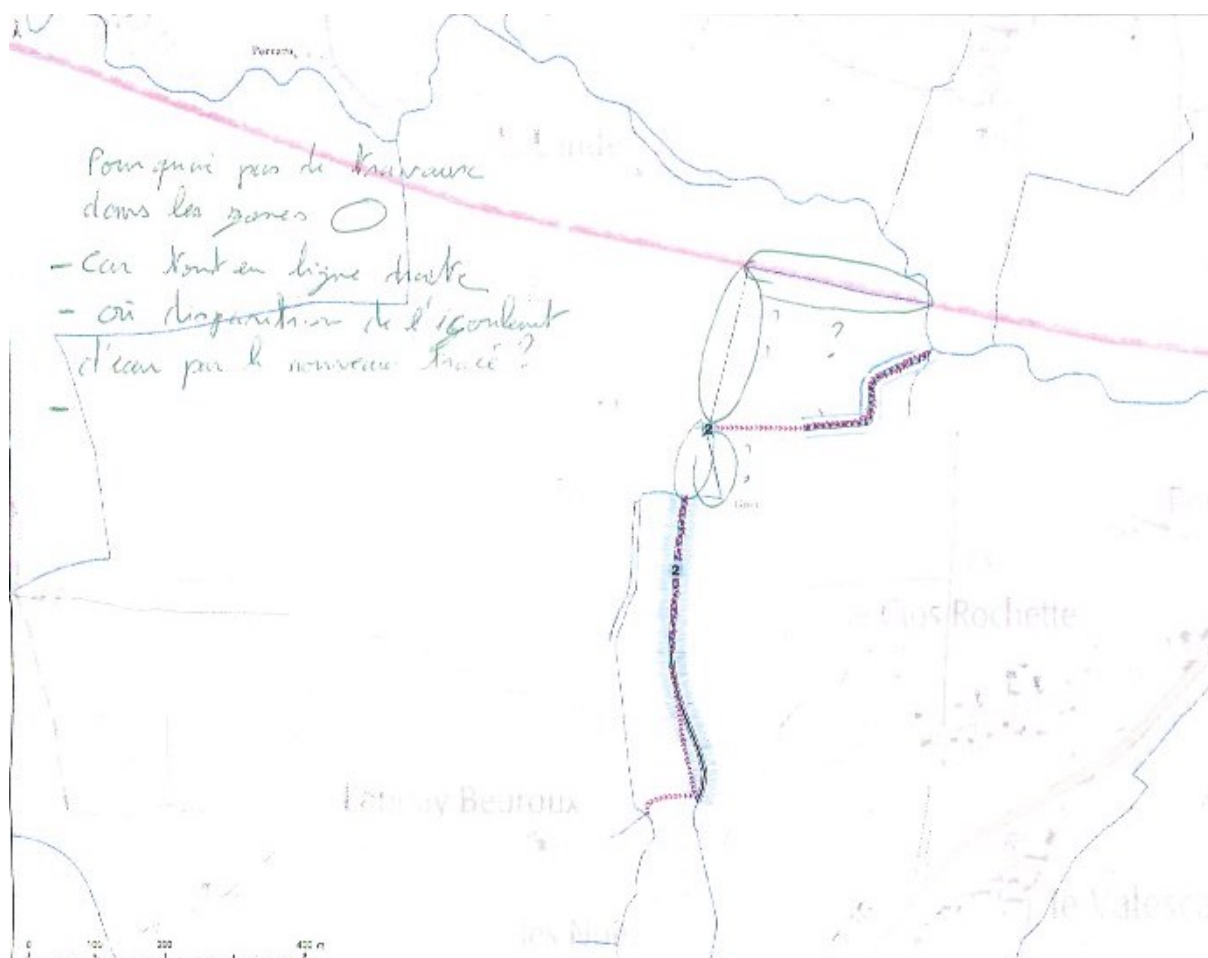 Pourquoi pas de travaux
dans les zones
- Car tout en ligne droite
- où disparition de l'écoulement
d'eau par le nouveau tracé ?
-
?
?
?
?
2
2
Clos Rochette
Beuroux
le Valesca
0 100 200 400 m